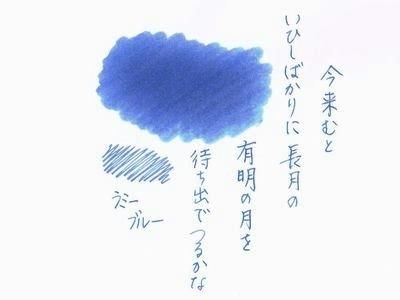 今来むと
いひしばかりに長月の
有明の月を
待ち出でつるかな
ラミー
ブルー